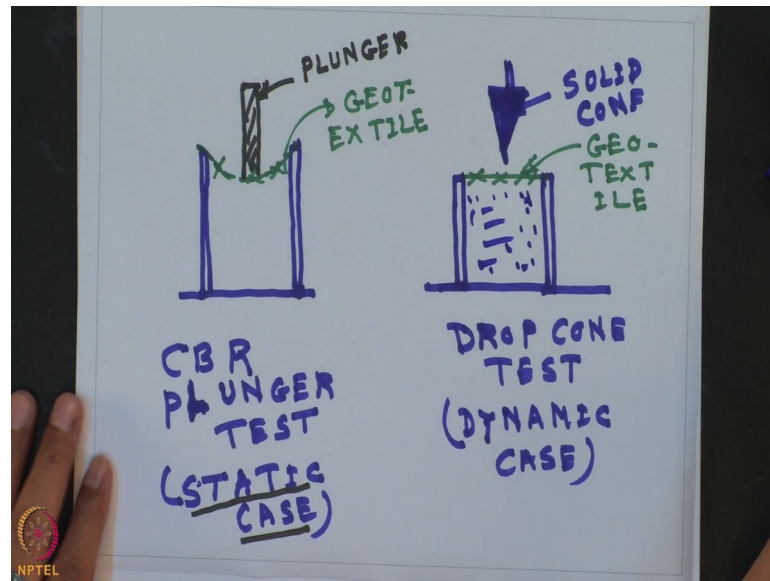 PLUNGER
GEOT-
EXTILE
CBR
PLUNGER
TEST
(STATIC
CASE)
SOLID
CONE
GEO-
TEXT
ILE
DROP CONE
TEST
(DYNAMIC
CASE)
NPTEL